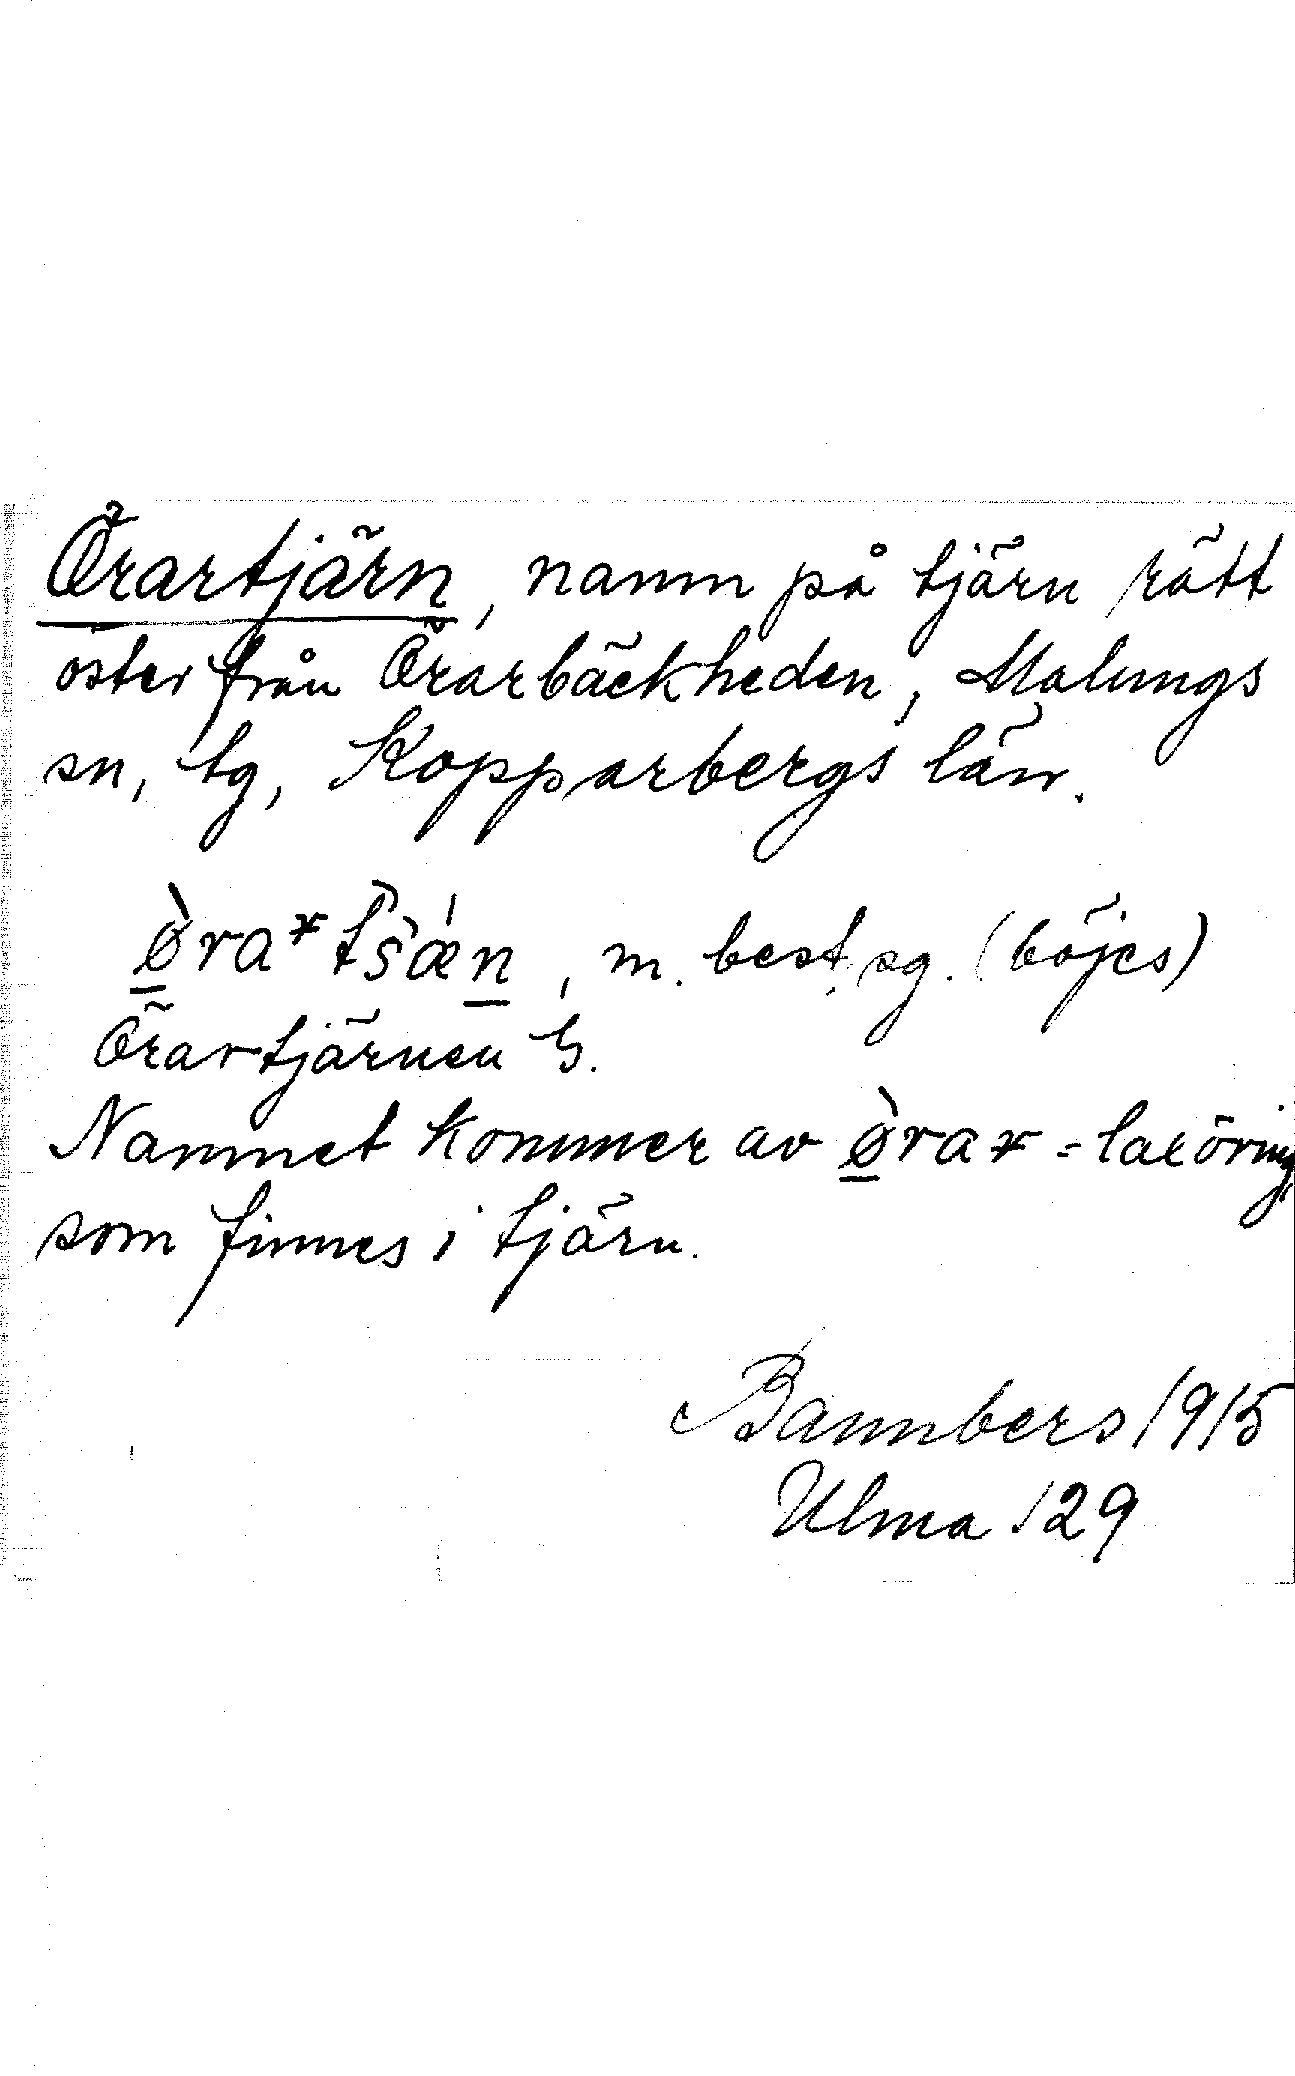 Örartjärn, namn på tjärn rätt
öster från Örarbäckheden, Malungs
sn, tg, Kopparbergs län.
m. best. sg. (böjes)
Örartjärnen b.
Namnet kommer av = laxöring,
som finnes i tjärn.
Bannbers 1915
Ulma 129